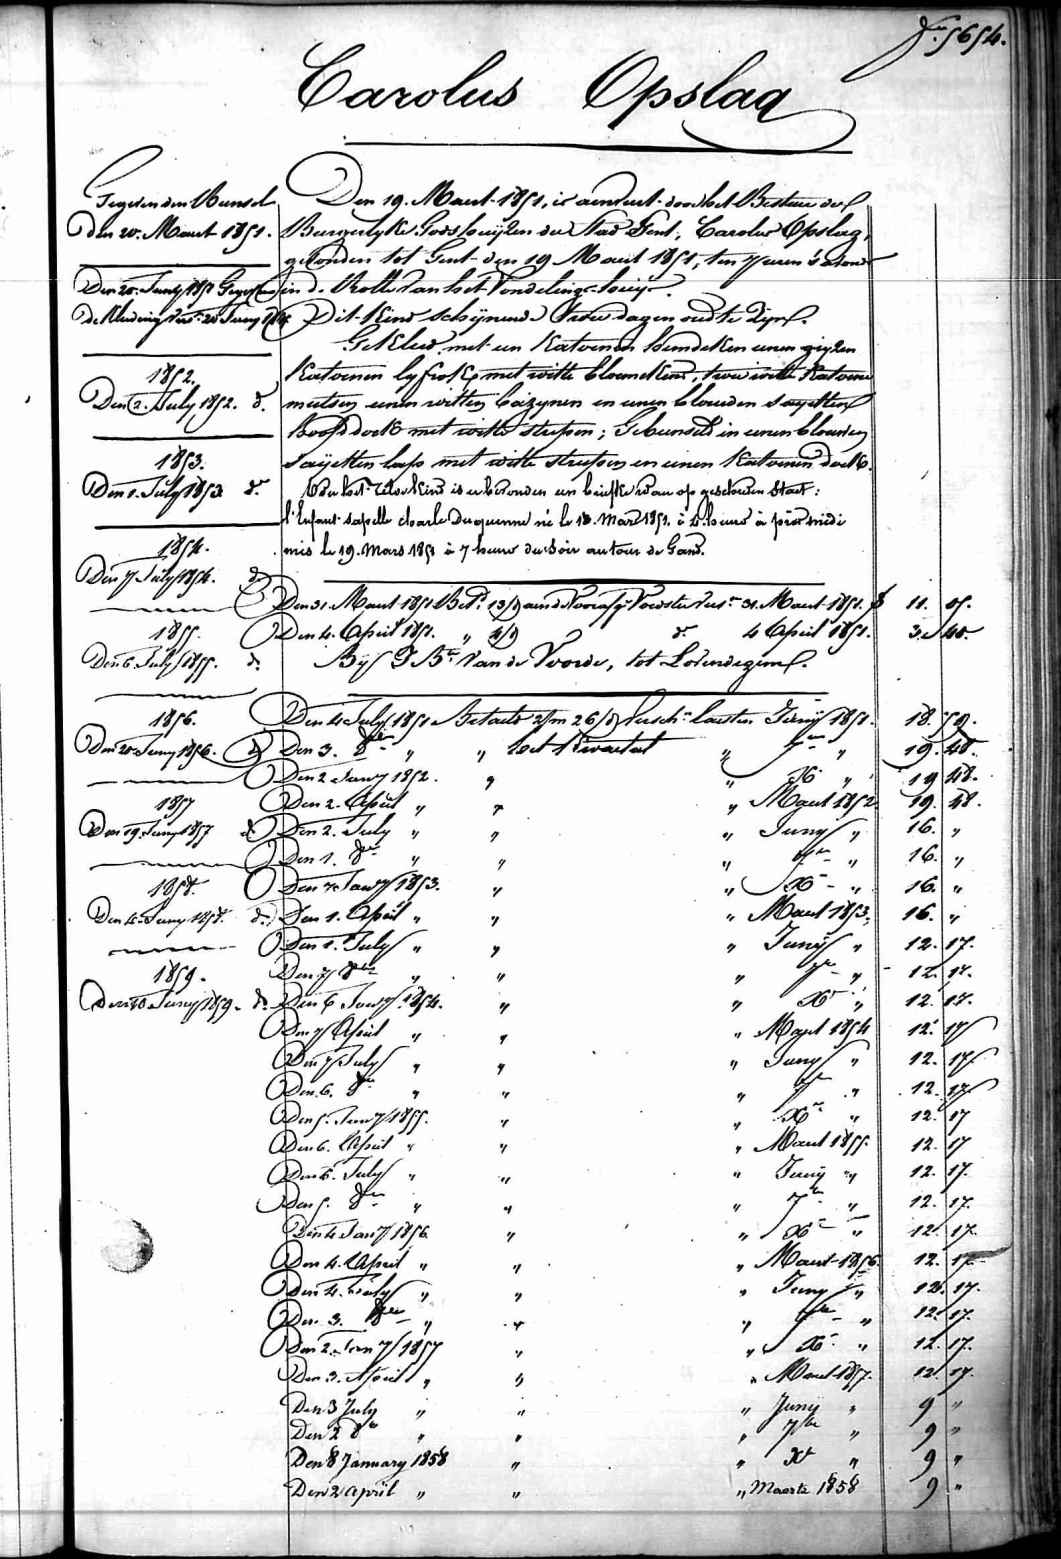 5654.
Carolus Opslag
Gegeven den Bunsel
den 20. Maart 1851.
Den 20. Juny 1851 Gegeven
de Kleeding
1852.
Den 2. July 1852. do.
1853.
Den 1. July 1853 do.
1854.
Den 7 July 1854. do.
1855.
Den 6. July 1855. do.
1856.
Den 20 Juny 1856. do.
1857
Den 19. Juny 1857 do.
1858.
Den 4. Juny 1858. do.
1859.
Juny 1859. do.
Den 19. Maart 1851, is aenveert door het Bestuer der
Burgerlyke Godshuyzen der Stad Gent, Carolus Opslag,
gevonden tot Gent den 19 Maart 1851, ten 7 uren 's avonds
in de Rolle van het Vondeling-huys.
Dit Kind schynende twee dagen oud te zyn.
Gekleed met een Katoenen hemdeken eenen gryzen
Katoenen lyfrok met witte bloemekens, twee witte Katoene
mutsen eenen witten en eenen blauwen sayetten
hoofddoek met witte strepen; Gebunseld in eenen blauwen
Sayetten lap met witte strepen en eenen Katoenen doek.
kind is er bevonden een briefke waer op geschreven staet:
l'Enfant sapelle charle Duquenne né le 18. Mars 1851. à 4. heure à près midi
mis le 19. Mars 1851 à 7 heure du soir au tour de Gand.
Den 31. Maart 1851 Bet. 13/d aen de Voorsz. Voedster 31. Maart 1851. f 11. 05.
Den 4. April 1851. " 4/d do. 4 April 1851. 3. 40.
By J. Bte. Van de Voorde, tot Lovendegem.
Den 4 July 1851 Betaald 2/m 26/d versch. laetsten Juny 1851. 18. 79.
Den 3. 8er " " het Kwartael " 7er " 19. 48.
Den 2 Janry 1852. " " Xr " 19 48.
Den 2. April " " " Maart 1852. 19. 48.
Den 2. July " " " Juny " 16. "
Den 1. 8er " " " 7er " 16. "
Den 7 Janry 1853. " " Xr " 16. "
Den 1. April " " " Maart 1853. 16. "
Den 1. July " " " Juny " 12. 17.
Den 7 8er " " " 7er " 12. 17.
Den 6 Janry 1854. " " Xr " 12. 17.
Den 7 April " " " Maart 1854 12. 17
Den 7 July " " " Juny " 12. 17
Den 6. 8er " " " 7er " 12. 17
Den 5. Janry 1855. " " Xr " 12. 17
Den 6. April " " " Maart 1855. 12. 17
Den 6. July " " " Juny " 12. 17.
Den 5. 8er " " " 7er " 12. 17.
Den 4 Janry 1856 " " Xr " 12. 17.
Den 4. April " " " Maart 1856. 12. 17.
Den 4. July " " " Juny " 12. 17.
Den 3. 8er " " " 7er " 12. 17.
Den 2. Janry 1857 " " Xr " 12. 17.
Den 3. April " " " Maart 1857. 12. 17.
Den 3 July " " " Juny " 9 "
Den 2 8er " " " 7br " 9 "
Den 8 January 1858 " " Xr " 9 "
Den 2 April " " " Maarte 1858 9 "